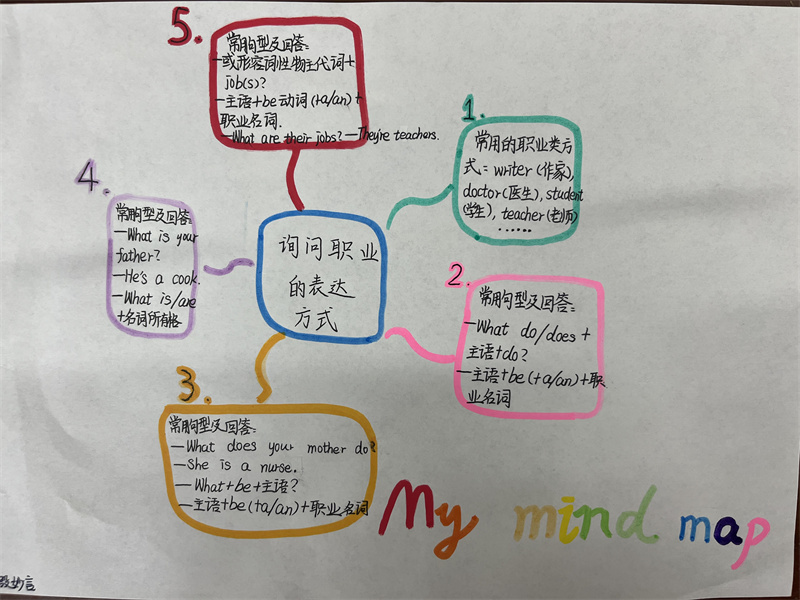 询问职业
的表达
方式
1.
常用的职业类方
式:writer(作家),
doctor(医生),student
(学生),teacher(老师)
……
2.
常用句型及回答:
—What do/does+
主语+do?
—主语+be(+a/an)+职
业名词
3.
常用句型及回答:
—What does your mother do?
—She is a nurse.
—What+be+主语?
—主语+be(+a/an)+职业名词
4.
常用句型及回答:
—What is your
father?
—He's a cook.
—What is/are
+名词所有格
5.
常用句型及回答:
—或形容词性物主代词+
job(s)?
—主语+be动词(+a/an)+
职业名词.
—What are their jobs?—They're teachers.
My mind map